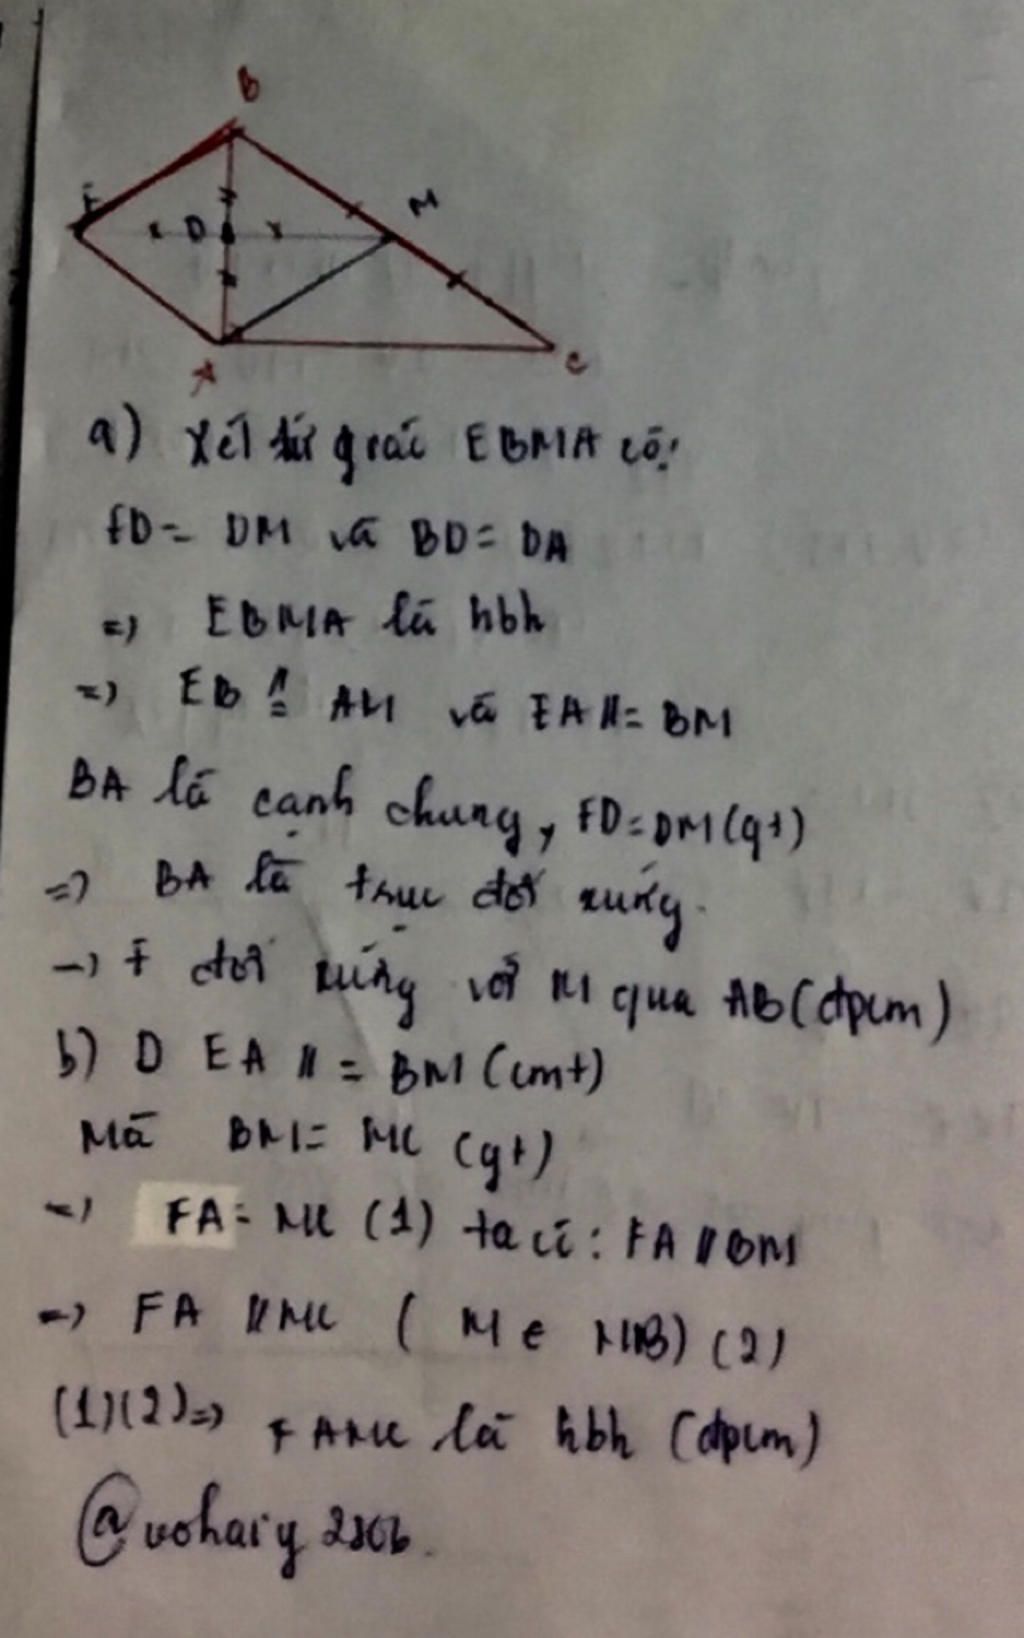 B
E
D
M
A
C
a) Xét tứ giác EBMA có:
ED = DM và BD = DA
=> EBMA là hbh
=> EB //= AM và EA //= BM
BA là cạnh chung, ED = DM (gt)
=> BA là trục đối xứng.
-> E đối xứng với M qua AB (đpcm)
b) D EA // = BM (cmt)
Mà BM = MC (gt)
=> EA = MC (1) ta có: EA // BM
=> EA // MC ( M ∈ MB) (2)
(1)(2) => EAMC là hbh (đpcm)